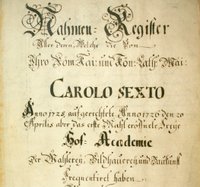 Nahmen-Register
Aller deren Welche die Von
Ihro Röm: Kai: und Kön: Cath: Mai:
CAROLO SEXTO
Anno 1725 aufgerichtete Anno 1726 den 20
Aprilis aber das erste Mahl eröffnete Freye
Hof: Academie
Der Mahlerey, Bildhauerey, und Baukunst
Frequentiret haben